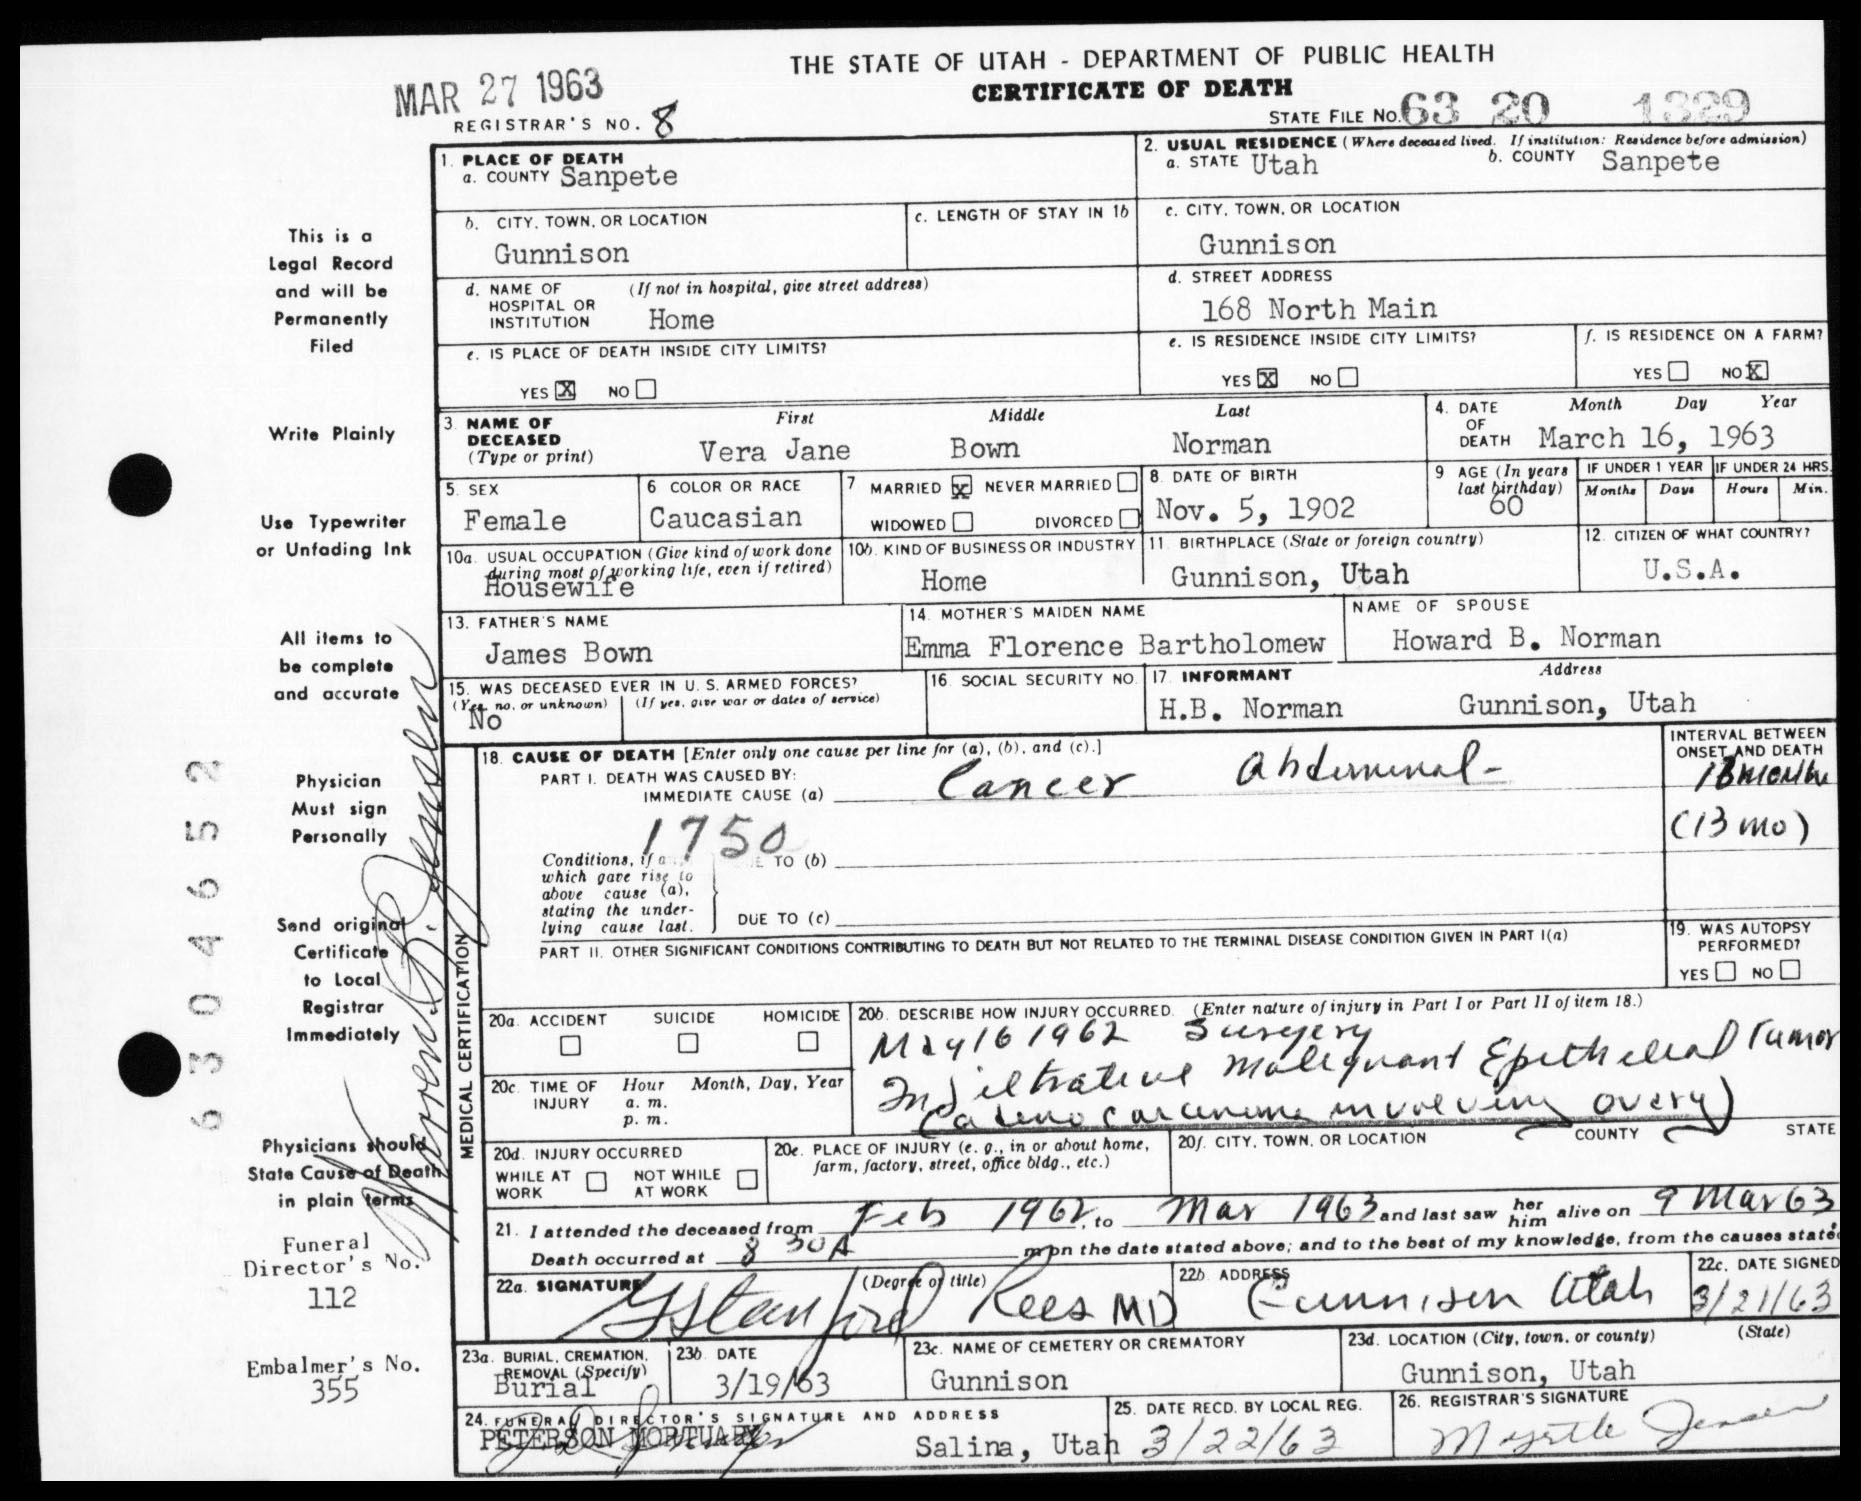 THE STATE OF UTAH - DEPARTMENT OF PUBLIC HEALTH
CERTIFICATE OF DEATH
MAR 27 1963
REGISTRAR'S NO. 8
STATE FILE NO. 63 20 1329
This is a
Legal Record
and will be
Permanently
Filed
Write Plainly
Use Typewriter
or Unfading Ink
All items to
be complete
and accurate
Physician
Must sign
Personally
Send original
Certificate
to Local
Registrar
Immediately
Physicians should
State Cause of Death
in plain terms
Funeral
Director's No.
112
Embalmer's No.
355
6304652
Warren B. Jensen
1. PLACE OF DEATH
a. COUNTY Sanpete
2. USUAL RESIDENCE (Where deceased lived. If institution: Residence before admission)
a. STATE Utah b. COUNTY Sanpete
b. CITY, TOWN, OR LOCATION
Gunnison
c. LENGTH OF STAY IN 1b
c. CITY, TOWN, OR LOCATION
Gunnison
d. NAME OF HOSPITAL OR INSTITUTION (If not in hospital, give street address)
Home
d. STREET ADDRESS
168 North Main
e. IS PLACE OF DEATH INSIDE CITY LIMITS?
YES X NO
e. IS RESIDENCE INSIDE CITY LIMITS?
YES X NO
f. IS RESIDENCE ON A FARM?
YES NO X
3. NAME OF DECEASED (Type or print)
First Middle Last
Vera Jane Bown Norman
4. DATE OF DEATH Month Day Year
March 16, 1963
5. SEX
Female
6 COLOR OR RACE
Caucasian
7 MARRIED X NEVER MARRIED
WIDOWED DIVORCED
8. DATE OF BIRTH
Nov. 5, 1902
9 AGE (In years last birthday)
60
IF UNDER 1 YEAR
Months Days
IF UNDER 24 HRS.
Hours Min.
10a. USUAL OCCUPATION (Give kind of work done during most of working life, even if retired)
Housewife
10b. KIND OF BUSINESS OR INDUSTRY
Home
11. BIRTHPLACE (State or foreign country)
Gunnison, Utah
12. CITIZEN OF WHAT COUNTRY?
U.S.A.
13. FATHER'S NAME
James Bown
14. MOTHER'S MAIDEN NAME
Emma Florence Bartholomew
NAME OF SPOUSE
Howard B. Norman
15. WAS DECEASED EVER IN U. S. ARMED FORCES?
(Yes, no, or unknown) (If yes, give war or dates of service)
No
16. SOCIAL SECURITY NO.
17. INFORMANT Address
H.B. Norman Gunnison, Utah
MEDICAL CERTIFICATION
18. CAUSE OF DEATH [Enter only one cause per line for (a), (b), and (c).]
PART I. DEATH WAS CAUSED BY:
IMMEDIATE CAUSE (a) Cancer Abdominal-
INTERVAL BETWEEN
ONSET AND DEATH
13 months
(13 mo)
1750
Conditions, if any, which gave rise to above cause (a), stating the underlying cause last.
DUE TO (b)
DUE TO (c)
PART II. OTHER SIGNIFICANT CONDITIONS CONTRIBUTING TO DEATH BUT NOT RELATED TO THE TERMINAL DISEASE CONDITION GIVEN IN PART I(a)
19. WAS AUTOPSY
PERFORMED?
YES NO
20a. ACCIDENT SUICIDE HOMICIDE
20b. DESCRIBE HOW INJURY OCCURRED. (Enter nature of injury in Part I or Part II of item 18.)
May 16 1962 Surgery
Infiltrative Malignant Epithelial Tumor
(adeno carcinoma involving ovary)
20c. TIME OF INJURY Hour Month, Day, Year
a. m.
p. m.
20d. INJURY OCCURRED
WHILE AT WORK NOT WHILE AT WORK
20e. PLACE OF INJURY (e. g., in or about home, farm, factory, street, office bldg., etc.)
20f. CITY, TOWN, OR LOCATION COUNTY STATE
21. I attended the deceased from Feb 1962, to Mar 1963 and last saw her him alive on 9 Mar 63
Death occurred at 8 30A m on the date stated above; and to the best of my knowledge, from the causes stated.
22a. SIGNATURE (Degree or title)
G Stanford Rees MD
22b. ADDRESS
Gunnison Utah
22c. DATE SIGNED
3/21/63
23a. BURIAL, CREMATION, REMOVAL (Specify)
Burial
23b. DATE
3/19/63
23c. NAME OF CEMETERY OR CREMATORY
Gunnison
23d. LOCATION (City, town, or county) (State)
Gunnison, Utah
24. FUNERAL DIRECTOR'S SIGNATURE AND ADDRESS
PETERSON MORTUARY Salina, Utah
25. DATE RECD. BY LOCAL REG.
3/22/63
26. REGISTRAR'S SIGNATURE
Myrtle Jensen